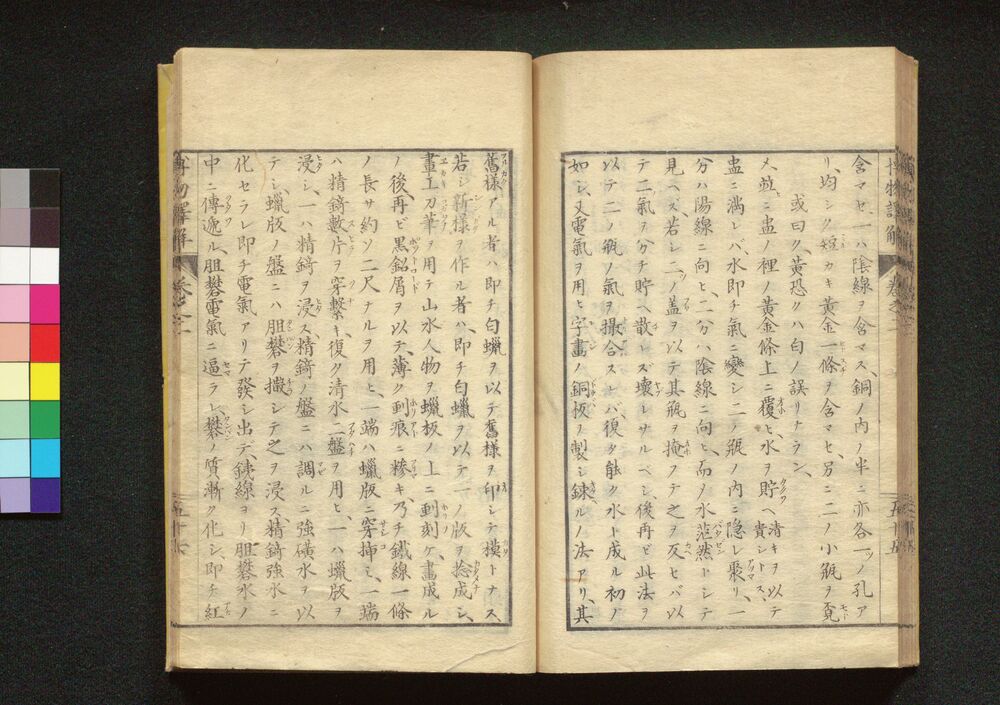 博物譯解 卷之二 五十五
含マセ、一ハ陰線ヲ含マス、銅ノ内ノ半ニ亦各一ツノ孔ア
リ、均シク短カキ黄金一條ヲ含マセ、另ニ二ノ小瓶ヲ覔
或曰ク、黄恐クハ白ノ誤リナラン、
メ、並ニ盅ノ裡ノ黄金條上ニ覆ヒ、水ヲ貯ヘ清キヲ以テ貴シトス、
盅ニ満レバ、水即チ氣ニ變シ二ノ瓶ノ内ニ隠レ聚リ、一
分ハ陽線ニ向ヒ、二分ハ陰線ニ向ヒ、而メ水茫然トシテ
見ヘズ若シ二ツノ盖ヲ以テ其瓶ヲ掩フテ之ヲ反セバ以
テ二氣ヲ分チ貯ヘ散レズ壊レサルベシ、後再ビ此法ヲ
以テ二ノ瓶ノ氣ヲ撮合スレバ、復ク能ク水ト成ル初ノ
如シ、又電氣ヲ用ヒ字畫ノ銅板ヲ製シ錬ルノ法アリ、其
舊樣アル者ハ即チ白蠟ヲ以テ舊樣ヲ印シテ模トナス、
若シ新樣ヲ作ル者ハ、即チ白蠟ヲ以テ一ノ版ヲ捻成シ、
畫工刀筆ヲ用テ山水人物ヲ蠟板ノ上ニ刻ケ、畫成ル
ノ後、再ビ黒鉛屑ヲ以テ、薄ク痕ニ糝キ、乃チ鐵線一條
ノ長サ約ソ二尺ナルヲ用ヒ、一端ハ蠟版ニ穿挿ミ、一端
ハ精錡數片ヲ穿繋キ復ク清水二盤ヲ用ヒ、一ハ蠟版ヲ
浸シ、一ハ精錡ヲ浸ス精錡ノ盤ニハ調ルニ強磺水ヲ以
テシ、蠟版ノ盤ニハ胆礬ヲ撒シテ之ヲ浸ス、精錡強水ニ
化セラレ即チ電氣アリテ發シ出デ、鐵線ヨリ胆礬水ノ
中ニ傳逓ル、胆礬電氣ニ逼ラレ、礬ノ質漸ク化シ、即チ紅
博物譯解 卷之二 五十六